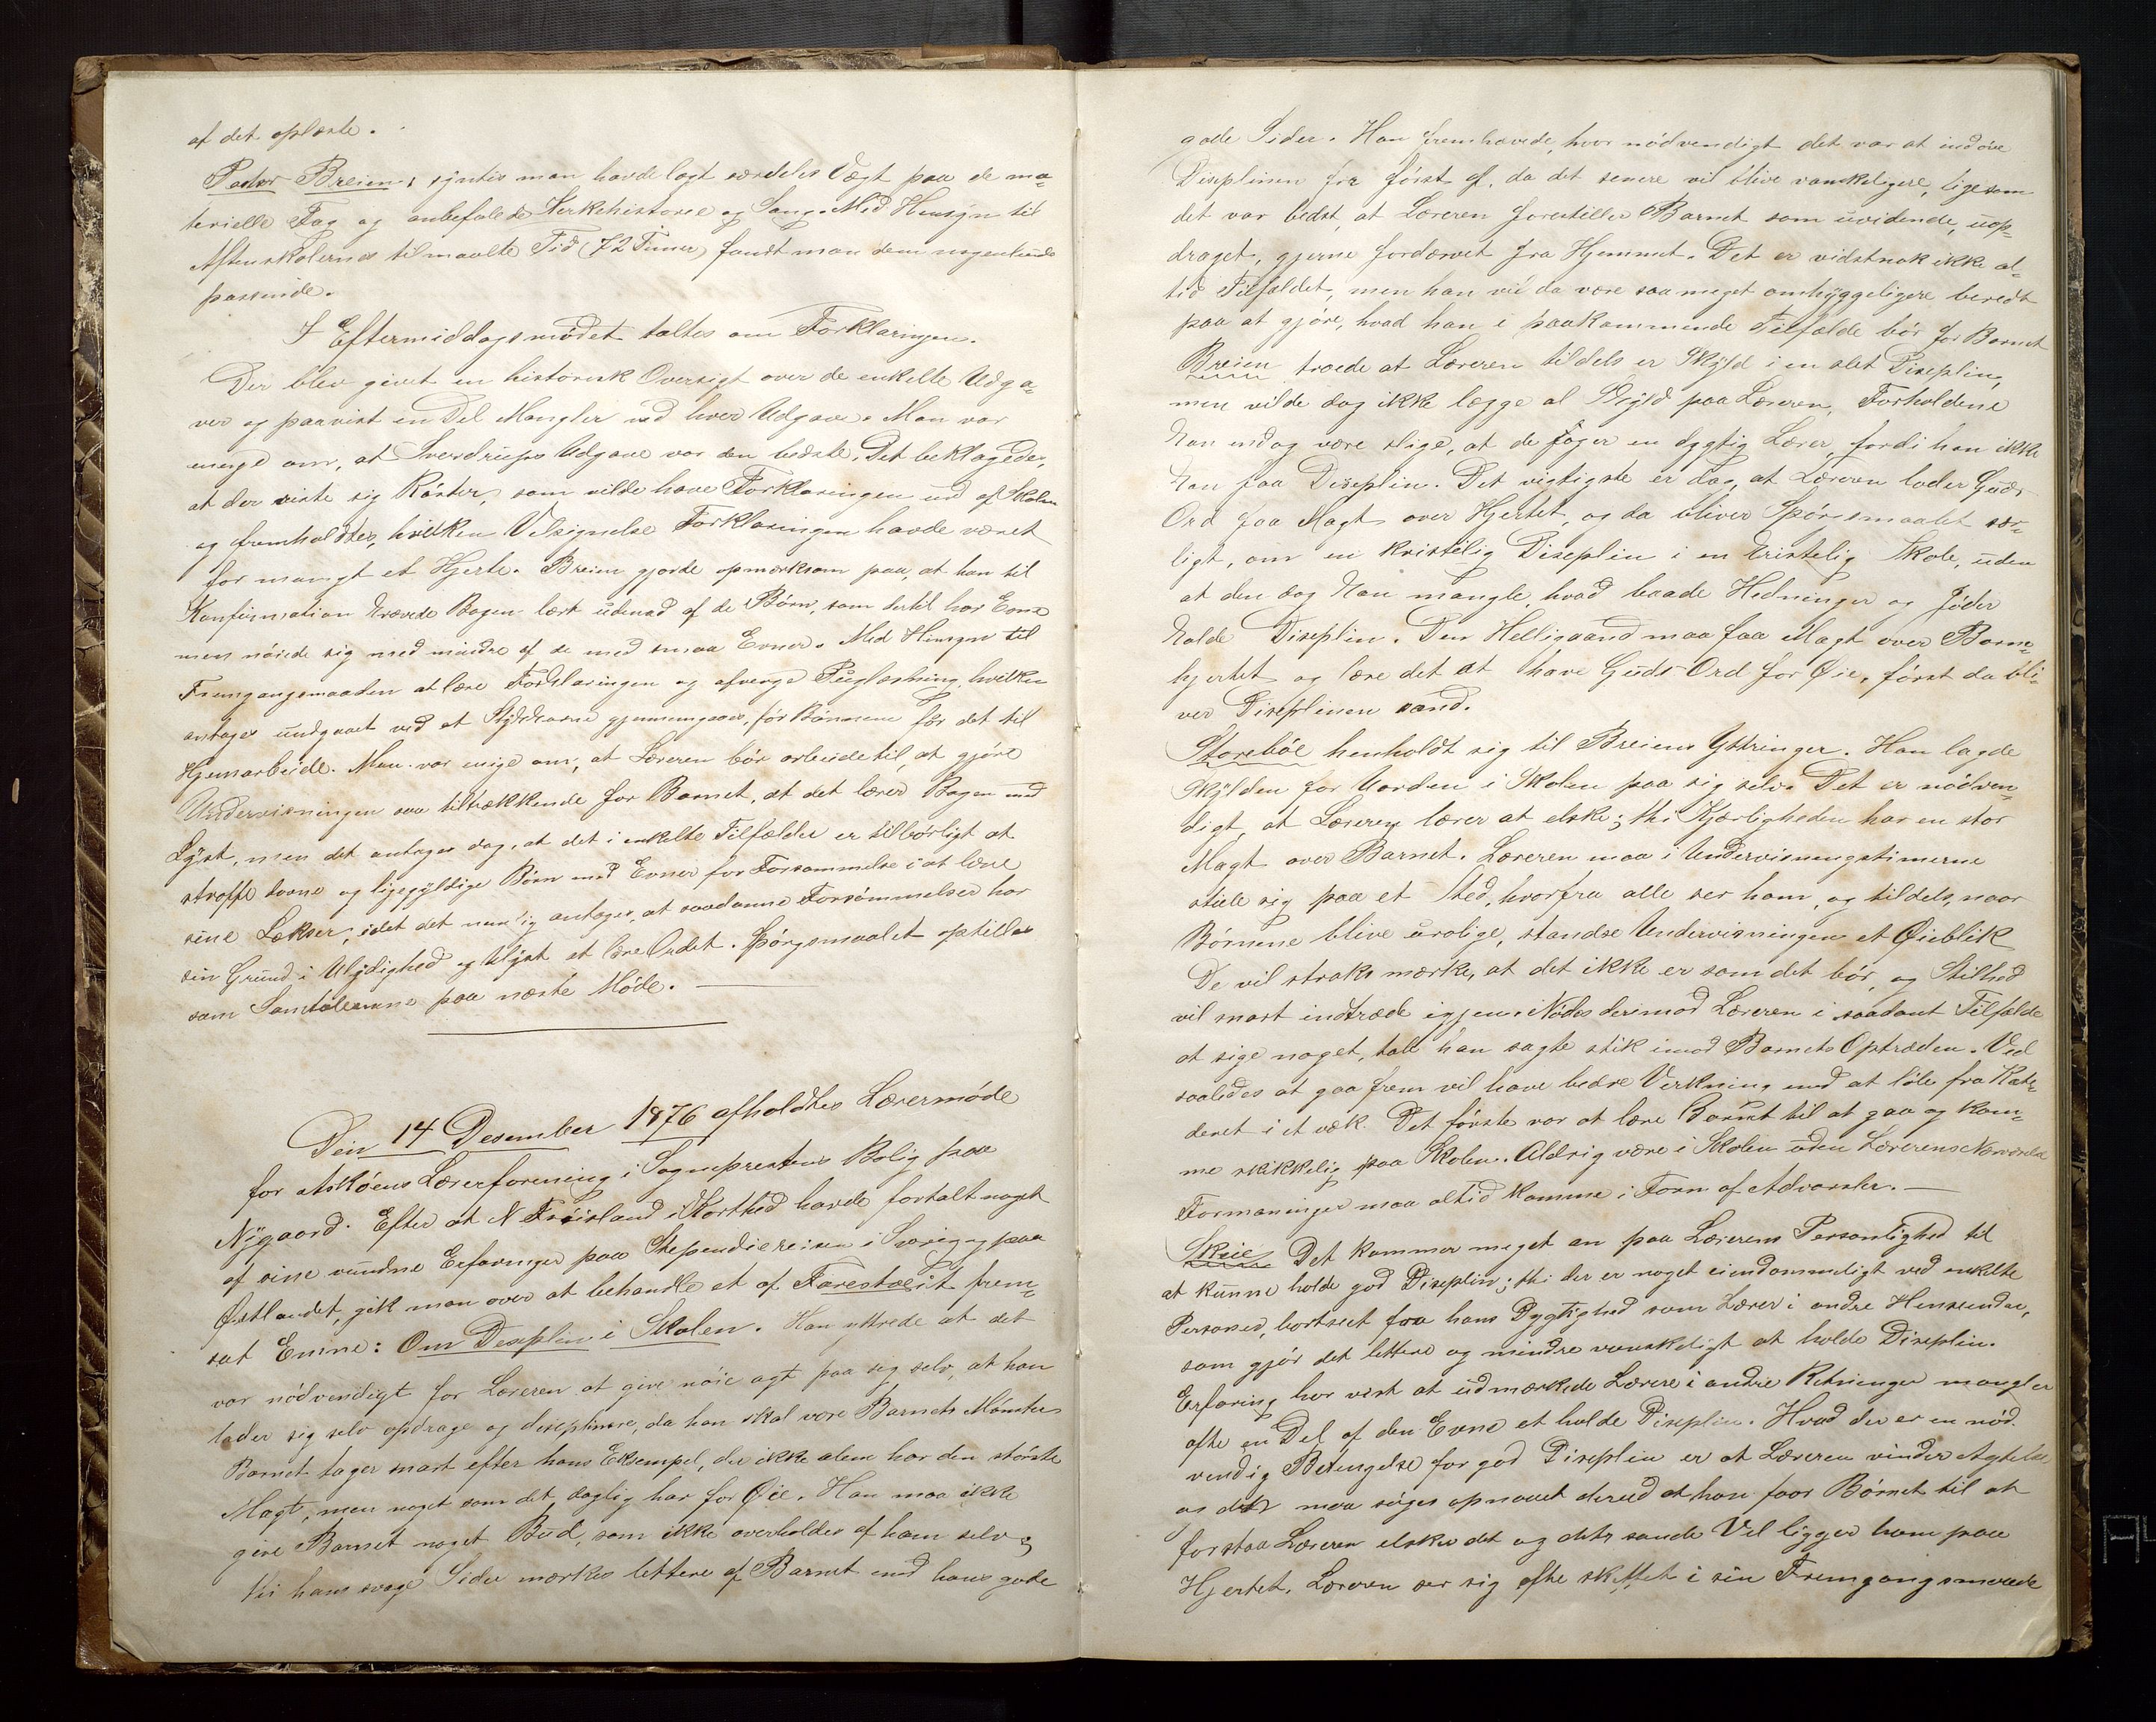 af det oplæste.
Pastor Breien: syntes man havde lagt særdeles Vægt paa de ma-
terielle Fag og anbefalede Kirkehistorie og Sang. Med Hensyn til
Aftenskolernes tilmaalte Tid (72 Timer) fandt man dem nogenlunde
passende.
I Eftermiddagsmødet taltes om Forklaringen.
Der blev givet en historisk Oversigt over de enkelte Udga-
ver og paavist en Del Mangler ved hver Udgave. Man var
enige om, at Sverdrups Udgave var den bedste. Det beklagedes,
at der reiste sig Röster, som vilde have Forklaringen ud af Skolen
og fremholdtes, hvilken Velsignelse Forklaringen havde været
for mangt et Hjerte. Breien gjorde opmærksom paa, at han til
Konfirmation krævede Bogen lært udenad af de Børn, som dertil har Evne
men nöiede sig med mindre af de med smaa Evner. Med Hensyn til
Fremgangsmaaden at lære Forklaringen og afværge Puglæsning, hvilken
antages undgaaet ved at Stykkerne gjennemgaaes, før Børnene før det til
Hjemarbeide. Man var enige om, at Læreren bör arbeide til, at gjöre
Undervisningen saa tiltrækkende for Barnet, at det lærer Bogen med
Lyst, men det antages dog, at det i enkelte Tilfælder er tilbørligt at
straffe dovne og ligegyldige Börn med Evner for Forsømmelse i at lære
sine Lækser, idet det nemlig antages, at saadanne Forsømmelser har
sin Grund i Ulydighed og Ulyst at lære Ordet. Spörgsmaalet optilles
som Samtaleemne paa næste Møde.
Den 14 Desember 1876 afholdtes Lærermöde
for Askøens Lærerforening i Sogneprestens Bolig paa
Nygaard. Efter at N Fröisland i Korthed havde fortalt noget
af sine vundne Erfaringer paa Stependiereisen i Sverig og paa
Østlandet, gik man over at behandle et af Farestveit frem-
sat Emne: Om Deseplin i Skolen. Han yttrede at det
var nödvendigt for Læreren at give nöie agt paa sig selv, at han
lader sig selv opdrage og deseplinere, da han skal være Barnets Mönster
Barnet tager snart efter hans Eksempel, der ikke alene har den störste
Magt, men noget som det daglig har for Øie. Han maa ikke
give Barnet noget Bud, som ikke overholdes af ham selv;
thi hans svage Sider mærkes lettere af Barnet end hans gode
gode Sider. Han fremhævede, hvor nödvendigt det var at indöve
Diseplinen fra først af, da det senere vil blive vanskeligere, ligesom
det var bedst, at Læreren forestiller Barnet som uvidende, uop-
draget, gjerne fordærvet fra Hjemmet. Det er vidstnok ikke al-
tid Tilfældet, men han vil da være saa meget omhyggeligere beredt
paa at gjöre, hvad han i paakommende Tilfælde bör for Barnet
Breien troede at Læreren tildels er Skyld i en slet Diseplin,
men vilde dog ikke lægge al Skyld paa Læreren, Forholdene
kan endog være slige, at de jager en dygtig Lærer, fordi han ikke
kan faa Diseplin. Det vigtigste er dog, at Læreren lader Guds
Ord faa Magt over Hjertet, og da bliver Spörgsmaalet sær-
ligt, om en kristelig Diseplin i en kristelig Skole, uden
at den dog kan mangle, hvad baade Hedninger og Jöder
kalde Diseplin. Den Helligaand maa faa Magt over Barne-
hjertet og lære det at have Guds Ord for Øie, först da bli-
ver Diseplinen sand.
Storeböe henholdt sig til Breiens Yttringer. Han lagde
Skylden for Uorden i Skolen paa sig selv. Det er nödven-
digt, at Læreren lærer at elske; thi Kjærligheden har en stor
Magt over Barnet. Læreren maa i Undervisningstimerne
stille sig paa et Sted, hvorfra alle ser ham, og tildels, naar
Börnene blive urolige, standse Undervisningen et Øieblik
De vil straks mærke, at det ikke er som det bör, og Stilhed
vil snart indtræde igjen. Nödes derimod Læreren i saadant Tilfælde
at sige noget, tale han sagte stik imod Barnets Optræden. Ved
saaledes at gaa frem vil have bedre Virkning end at löbe fra Kate-
deret i et væk. Det förste var at lære Barnet til at gaa og kom-
me skikkelig paa Skolen. Aldrig være i Skolen uden Lærerens Nærværelse
Formaninger maa altid komme i Form af Advarsler.
Skeie Det kommer meget an paa Lærerens Personlighed til
at kunne holde god Diseplin; thi der er noget eiendommeligt ved enkelte
Personer, bortseet fra hans Dygtighed som Lærer i andre Henseender,
som gjör det lettere og mindre vanskeligt at holde Diseplin.
Erfaring har vist at udmærkede Lærere i andre Retninger mangler
ofte en Del af den Evne at holde Diseplin. Hvad der er en nöd-
vendig Betingelse for god Diseplin er at Læreren vinder Agtelse,
og det maa söges opnaaet derved at han faar Barnet til at
forstaa Læreren elsker det og dets sande Vel ligger ham paa
Hjertet. Læreren ser sig ofte skuffet i sin Fremgangsmaade